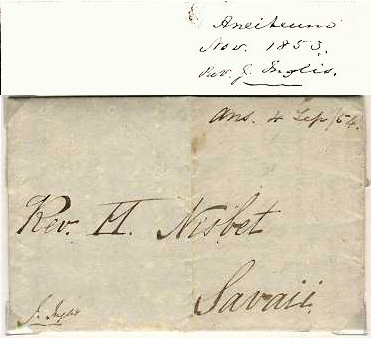 Aneiteum
Nov. 1853.
Rev J. Inglis.
ans. 4 Sep /54.
Rev. H. Nisbet
Savaii.
J. Inglis